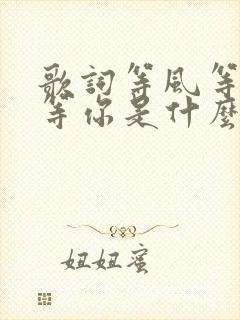 歌詞等風等
等你是什麼
妞妞蜜